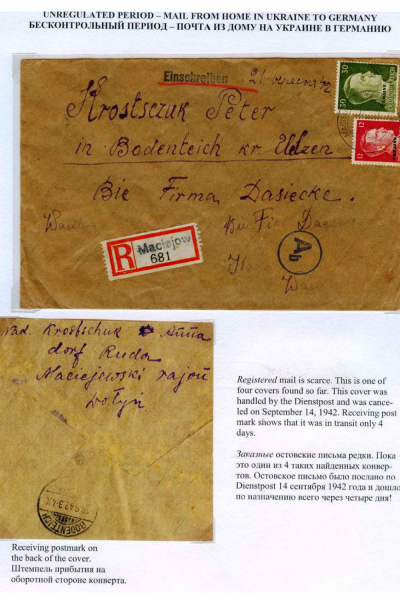 UNREGULATED PERIOD – MAIL FROM HOME IN UKRAINE TO GERMANY
БЕСКОНТРОЛЬНЫЙ ПЕРИОД – ПОЧТА ИЗ ДОМУ НА УКРАИНЕ В ГЕРМАНИЮ
Einschreiben
30 30
Krostsczuk Peter
12 12
in Bodenteich kr. Elzen
Bie Firma Dasiecke.
Bie Firma
R Maciejow
681
Ab
Nad. Krostschuk Anna
dorf Ruda
Maciejewski rajon
Wołyń
BODENTEICH
Registered mail is scarce. This is one of
four covers found so far. This cover was
handled by the Dienstpost and was cance-
led on September 14, 1942. Receiving post
mark shows that it was in transit only 4
days.
Заказные остовские письма редки. Пока
это один из 4 таких найденных конвер-
тов. Остовское письмо было послано по
Dienstpost 14 сентября 1942 года и дошло
по назначению всего через четыре дня!
Receiving postmark on
the back of the cover.
Штемпель прибытия на
оборотной стороне конверта.